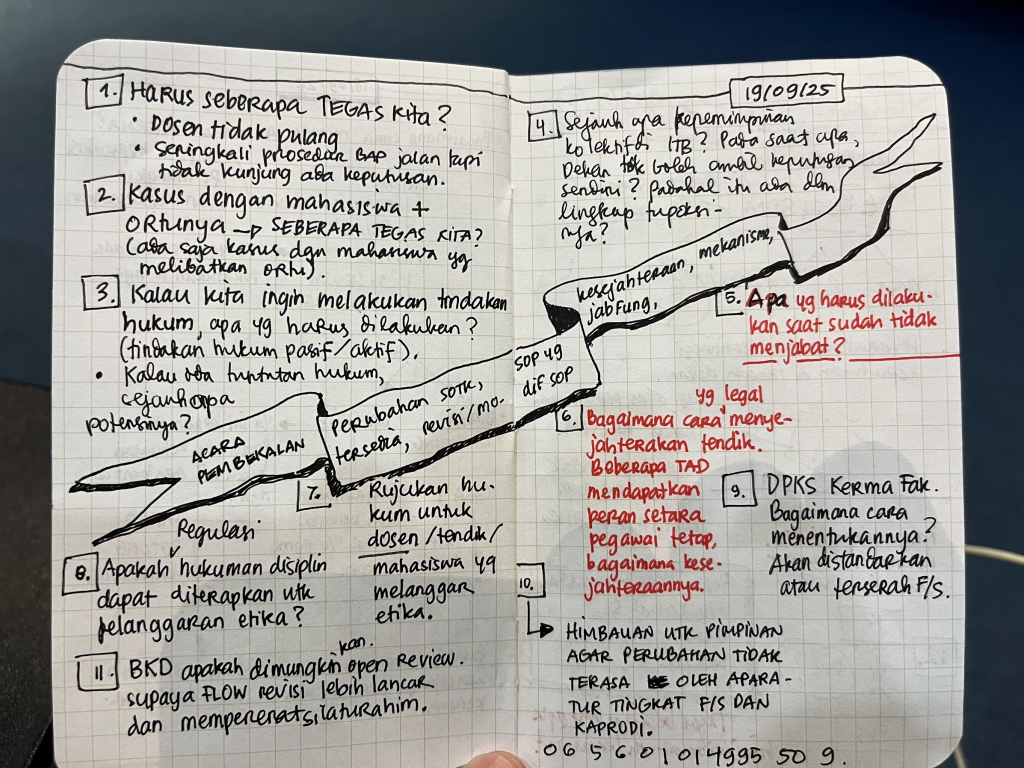 1. Harus seberapa TEGAS Kita?
• Dosen tidak pulang
• Seringkali prosedur BAP jalan tapi
tidak kunjung ada keputusan.
2. Kasus dengan mahasiswa +
ORtunya → SEBERAPA TEGAS KITA?
(ada saja kasus dgn mahasiswa yg
melibatkan ORtu).
3. Kalau kita ingin melakukan tindakan
hukum, apa yg harus dilakukan?
(tindakan hukum pasif/aktif).
• Kalau ada tuntutan hukum,
sejauh apa
potensinya?
ACARA
PEMBEKALAN
perubahan SOTK,
tersedia, revisi/mo-
SOP yg
dif SOP
kesejahteraan, mekanisme,
jabFung,
7. Rujukan hu-
kum untuk
dosen/tendik/
mahasiswa yg
melanggar
etika.
Regulasi
8. Apakah hukuman disiplin
dapat diterapkan utk
pelanggaran etika?
kan.
11. BKD apakah dimungkin open Review.
supaya FLOW revisi lebih lancar
dan mempererat silaturahim.
19/09/25
4. Sejauh apa kepemimpinan
kolektif di ITB? Pada saat apa,
Dekan tdk boleh ambil keputusan
sendiri? Padahal itu ada dlm
lingkup tupoksi-
nya?
5. Apa yg harus dilaku-
kan saat sudah tidak
menjabat?
yg legal
6. Bagaimana cara menye-
jahterakan tendik.
Beberapa TAD
mendapatkan
peran setara
pegawai tetap,
bagaimana kese-
jahteraannya.
9. DPKS Kerma Fak.
Bagaimana cara
menentukannya?
Akan distandarkan
atau terserah F/S.
10.
HIMBAUAN UTK PIMPINAN
AGAR PERUBAHAN TIDAK
TERASA OLEH APARA-
TUR TINGKAT F/S DAN
KAPRODI.
06 5 6 01 014995 50 9.